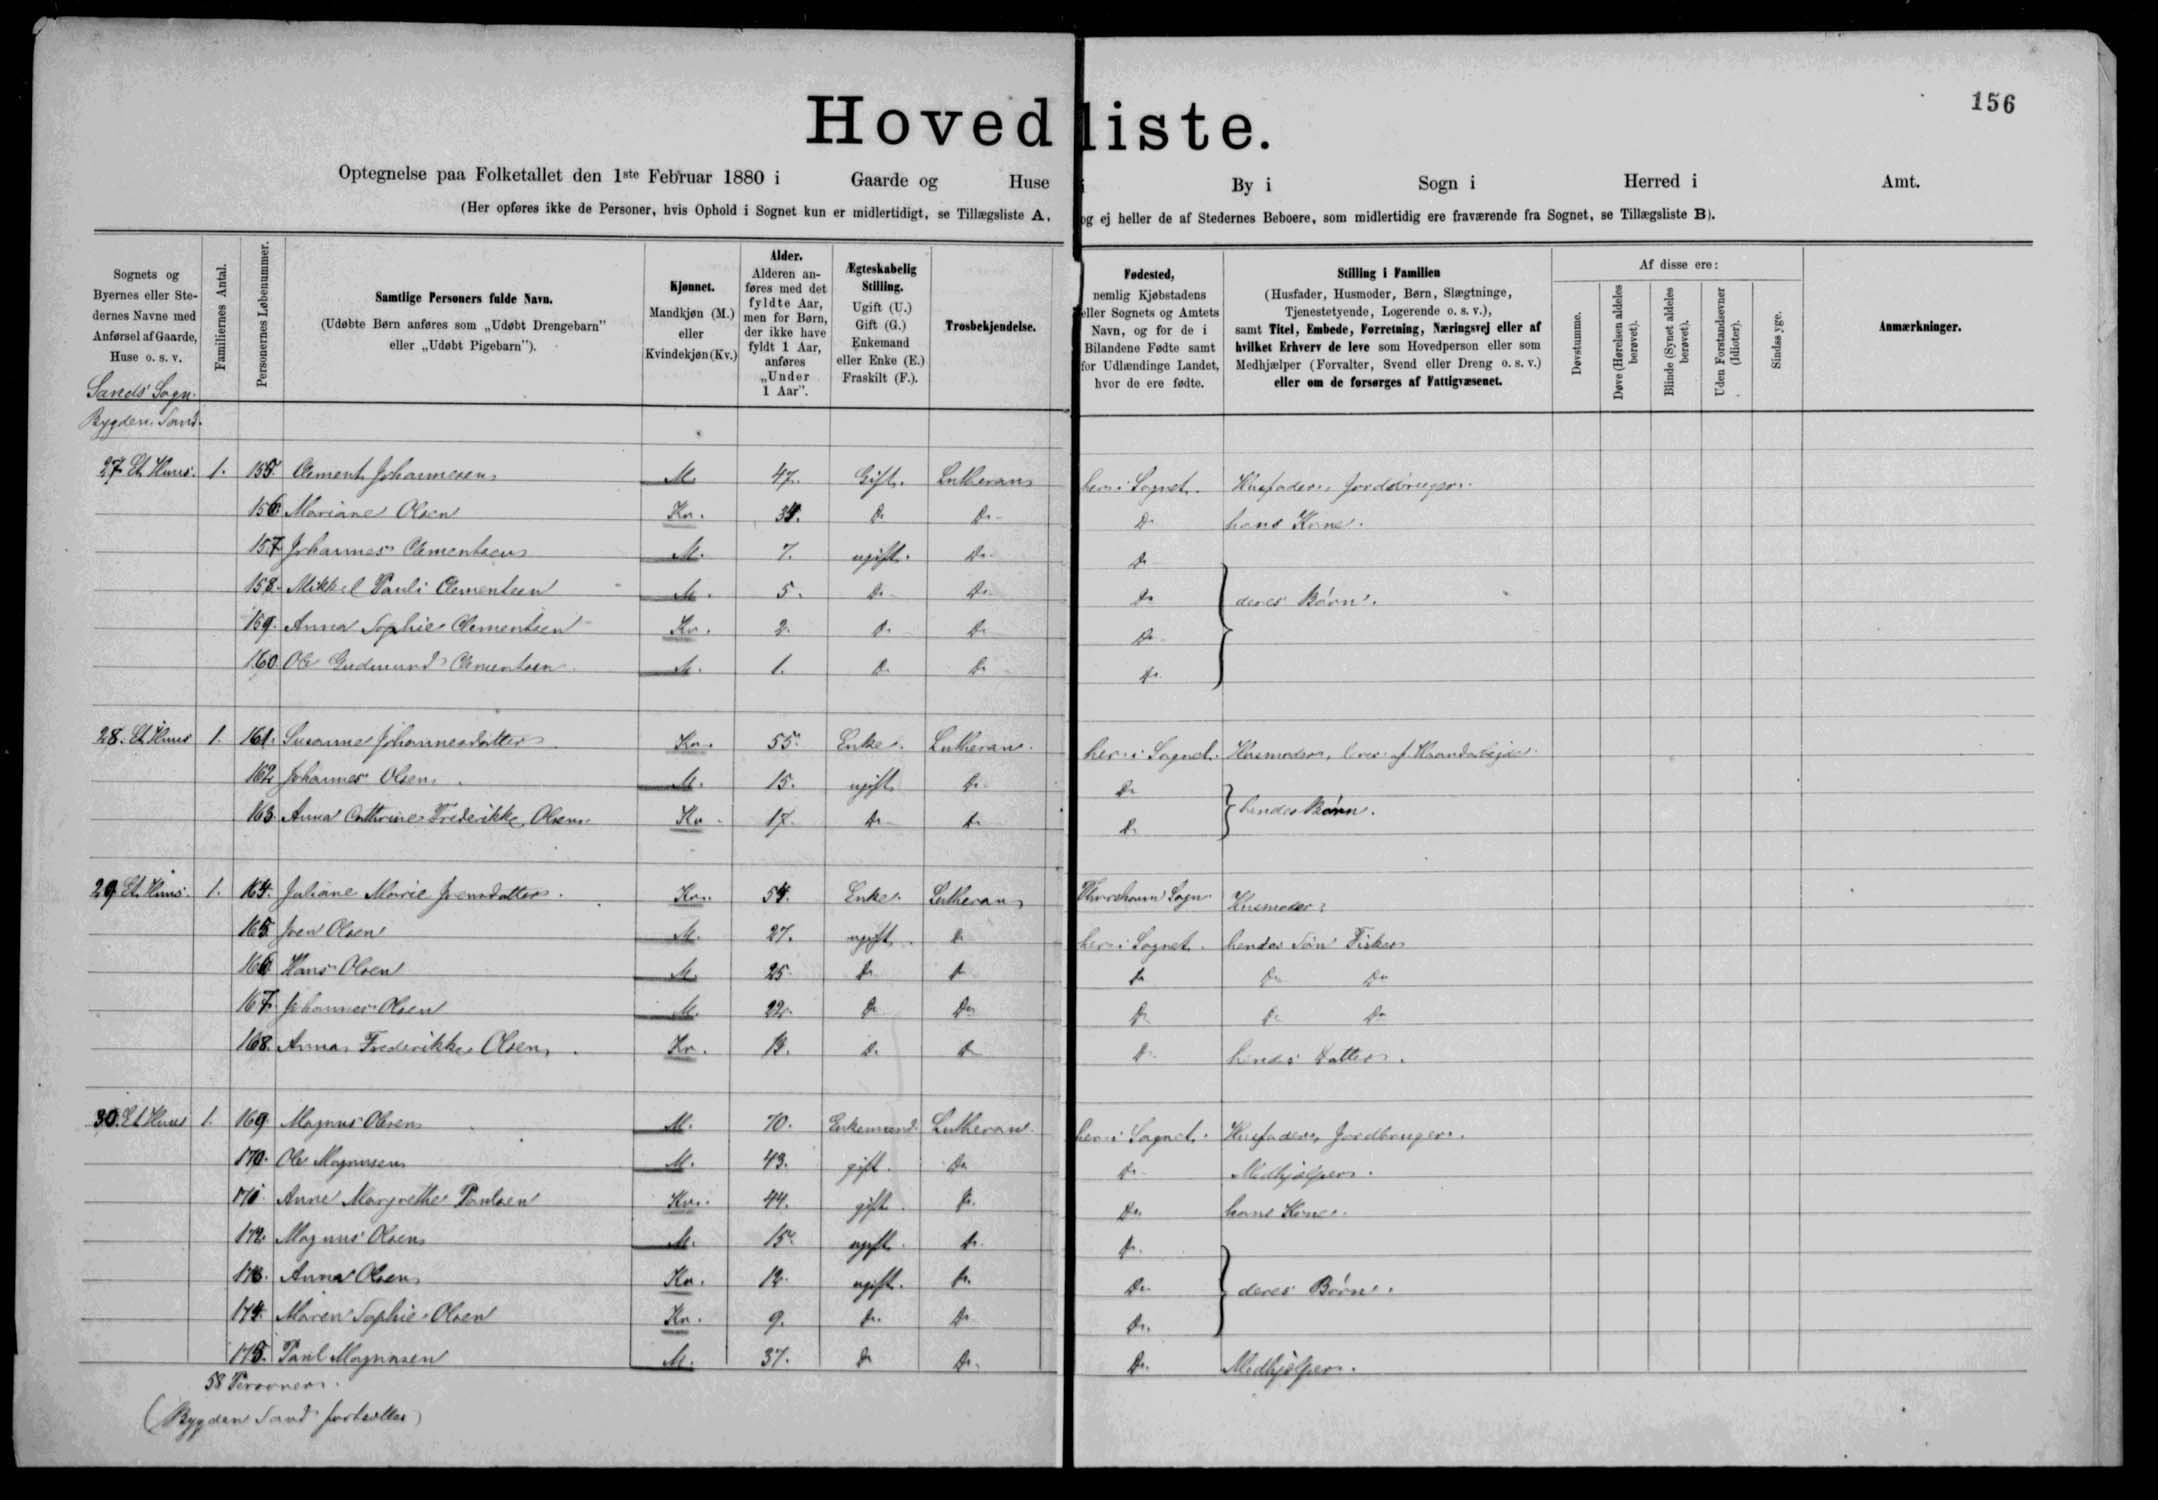 156
Hovedliste.
Optegnelse paa Folketallet den 1ste Februar 1880 i Gaarde og Huse i By i Sogn i Herred i Amt.
(Her opføres ikke de Personer, hvis Ophold i Sognet kun er midlertidigt, se Tillægsliste A, og ej heller de af Stedernes Beboere, som midlertidig ere fraværende fra Sognet, se Tillægsliste B).
Sognets og
Byernes eller Ste-
dernes Navne med
Anførsel af Gaarde,
Huse o. s. v.
Familiernes Antal.
Personernes Løbenummer.
Samtlige Personers fulde Navn.
(Udøbte Børn anføres som „Udøbt Drengebarn"
eller „Udøbt Pigebarn").
Kjønnet.
Mandkjøn (M.)
eller
Kvindekjøn (Kv.)
Alder.
Alderen an-
føres med det
fyldte Aar,
men for Børn,
der ikke have
fyldt 1 Aar,
anføres
„Under
1 Aar".
Ægteskabelig
Stilling.
Ugift (U.)
Gift (G.)
Enkemand
eller Enke (E.)
Fraskilt (F.).
Trosbekjendelse.
Fødested,
nemlig Kjøbstadens
eller Sognets og Amtets
Navn, og for de i
Bilandene Fødte samt
for Udlændinge Landet,
hvor de ere fødte.
Stilling i Familien
(Husfader, Husmoder, Børn, Slægtninge,
Tjenestetyende, Logerende o. s. v.),
samt Titel, Embede, Forretning, Næringsvej eller af
hvilket Erhverv de leve som Hovedperson eller som
Medhjælper (Forvalter, Svend eller Dreng o. s. v.)
eller om de forsørges af Fattigvæsenet.
Af disse ere:
Døvstumme.
Døve (Hørelsen aldeles
berøvet).
Blinde (Synet aldeles
berøvet).
Uden Forstandsevner
(Idioter).
Sindssyge.
Anmærkninger.
Sands Sogn.
Bygden Sand.
27. Et Huus. 1. 155. Clement Johannesen M. 47. Gift. Lutheran her i Sognet. Husfader, Jordbruger.
156. Mariane Olsen Kv. 34. Do Do Do hans Kone.
157. Johannes Clementsen M. 7. ugift. Do Do
158. Mikkel Pauli Clementsen M. 5. Do Do Do deres Børn.
159. Anna Sophie Clementsen Kv. 2. Do Do Do
160. Ole Gudmund Clementsen M. 1. Do Do Do
28. Et Huus 1. 161. Susanne Johannesdatter Kv. 55. Enke. Lutheran. her i Sognet. Husmoder, lever af Haandarbejde.
162. Johannes Olsen M. 15. ugift Do Do
163. Anna Cathrine Frederikke Olsen Kv. 17. Do Do Do hendes Børn.
29. Et Huus. 1. 164. Juliane Marie Joensdatter. Kv. 54. Enke. Lutheran Thorshavn Sogn Husmoder.
165. Joen Olsen M. 27. ugift. Do her i Sognet. hendes Søn Fisker
166. Hans Olsen M. 25. Do Do Do Do Do
167. Johannes Olsen M. 22. Do Do Do Do Do
168. Anna Frederikke Olsen Kv. Do Do Do hendes Datter.
30. Et Huus 1. 169. Magnus Olesen M. 70. Enkemand. Lutheran. her i Sognet. Husfader, Jordbruger.
170. Ole Magnusen M. 43. gift. Do Do Medhjælper.
171. Anne Margrethe Poulsen Kv. 44. gift. Do Do hans Kone.
172. Magnus Olsen M. 15. ugift. Do Do
173. Anna Olsen Kv. 12. ugift. Do Do deres Børn.
174. Maren Sophie Olsen Kv. 9. Do Do Do
175. Paul Magnusen M. 37. Do Do Do Medhjælper.
58 Personer.
(Bygden Sand fortsættes)